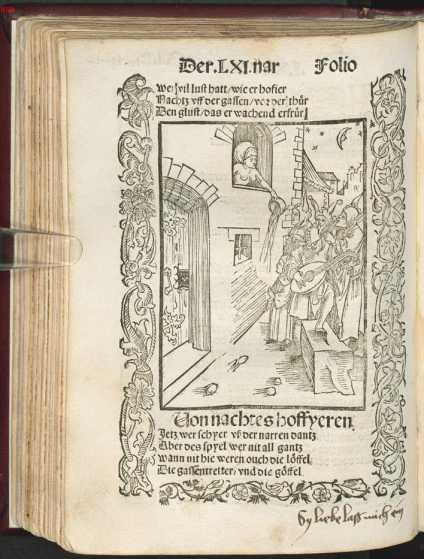 Der.LXI.nar Folio
Wer vil lust hatt/wie er hofier
Nachtz vff der gassen/vor der thür
Den glust/das er wachend erfrür
Von nachtes hoffyeren
Jetz wer schyer vß der narren dantz
Aber des spyel wer nit all gantz
Wann nit hie weren ouch die löffel
Die gassentretter/vnd die göffel